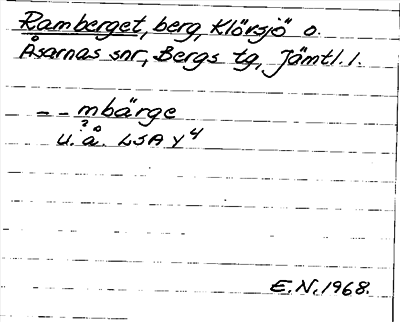 Ramberget, berg, Klörsjö o.
Åsarnas snr, Bergs tg, Jämtl. l.
– – mbärge
u. å. LSA Y4
E.N. 1968.